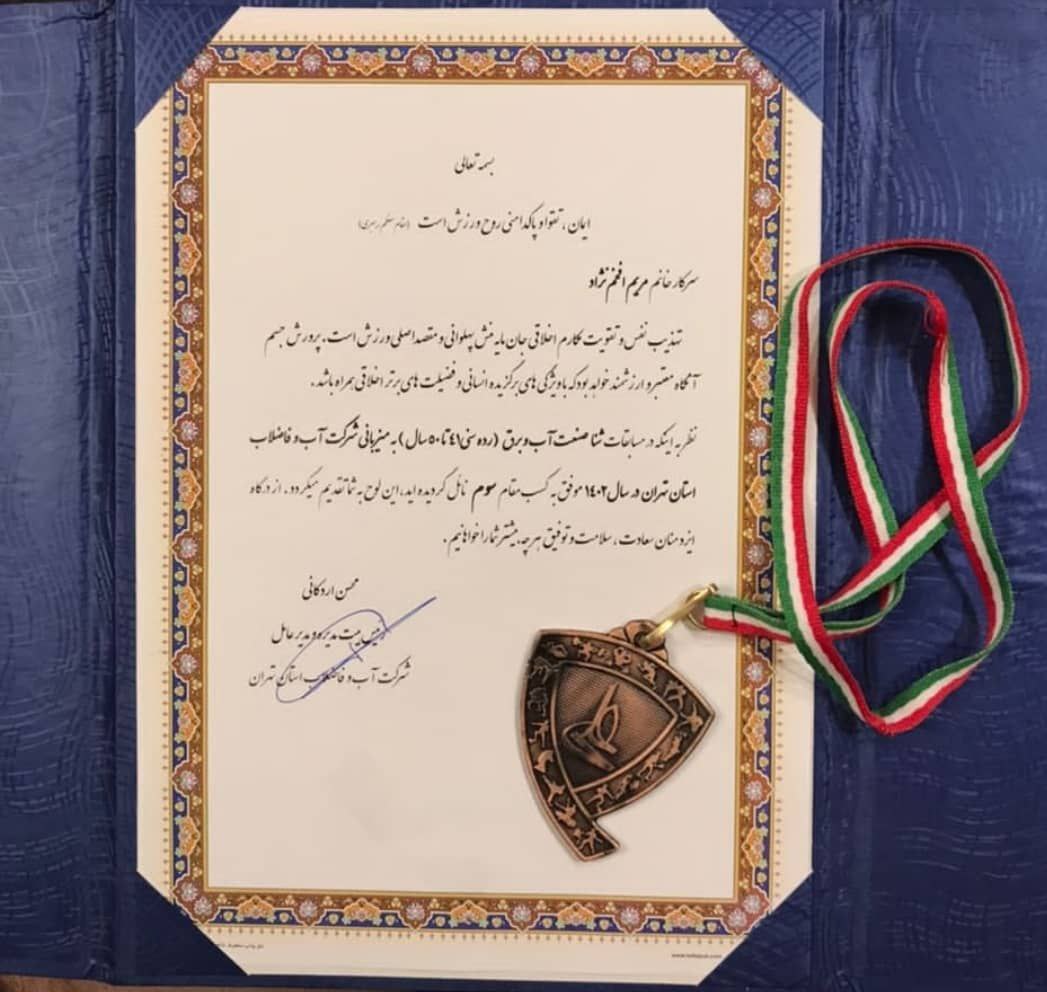 بسمه تعالی
ایمان، تقوا و پاکدامنی روح ورزش است (مقام معظم رهبری)
سرکار خانم مریم افخم نژاد
تهذیب نفس و تقویت مکارم اخلاقی جان مایه منش پهلوانی و مقصد اصلی ورزش است. پرورش جسم
آنگاه معتبر و ارزشمند خواهد بود که با ویژگی های برگزیده انسانی و فضیلت های برتر اخلاقی همراه باشد.
نظر به اینکه در مسابقات شنا صنعت آب و برق (رده سنی ۴۱ تا ۵۰ سال) به میزبانی شرکت آب و فاضلاب
استان تهران در سال ۱۴۰۲ موفق به کسب مقام سوم نائل گردیده اید، این لوح به شما تقدیم میگردد. از درگاه
ایزد منان سعادت، سلامت و توفیق هرچه بیشتر شما را خواهانیم.
محسن اردکانی
رئیس هیئت مدیره و مدیر عامل
شرکت آب و فاضلاب استان تهران